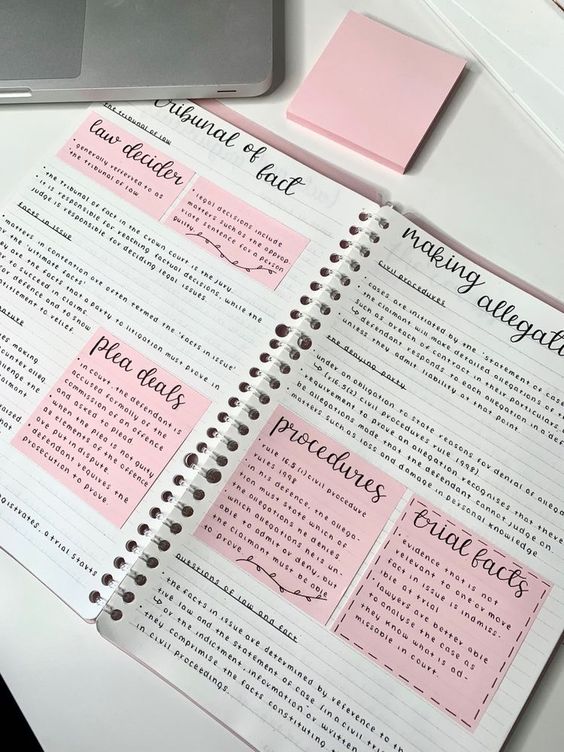 tribunal of fact
the tribunal of law
law decider
• generally referred to as
the tribunal of law
• legal decisions include
matters such as the approp.
riate sentence for a person
guilty
• the tribunal of fact in the crown court is the jury.
it is responsible for reaching factual decisions, while the
judge is responsible for deciding legal issues.
facts in issue
• matters in contention are often termed the 'facts in issue'
the 'ultimate facts'
are the facts that a party to litigation must prove in
to succeed in claims
or defence and to show
entitlement to relief
making
counter alleg.
enged the
claimant
raised
that
agistrates, a trial starts
plea deals
• in court, the defendant is
accused formally of the
commission of an offence
and asked to plead
• when the plea is not guilty
elements of the offence
are put in dispute.
• defendant requires the
prosecution to prove.
making allegati
civil procedures
• cases are initiated by the 'statement of case
• the claimant will make detailed allegations of
such as breach of contract in the particulars
↳ defendant responds to each allegation in a de
unless they admit liability at that point.
the denying party
under an obligation to state reasons for denial of allega
↳ (r16.5(2) civil procedures rule, 1998)
requirement to prove an allegation recognises that there
be allegations made that the defendant cannot judge on,
matters such as loss and damage in personal knowledge
procedures
• rule 16.5 (1) civil procedure
rules 1998
• in his defence, the allega.
tion must state which of
the allegations he denies
which allegations he is un
able to admit or deny, but
the claimant must be able
to prove
trial facts
• evidence that is not
relevant to one or more
fact in issue is inadmis.
ible at trial
• lawyers are better able
to analyse the case as
they know what is ad.
missable in court.
questions of law and fact
• the facts in issue are determined by reference to
tive law and the statement of case (in a civil
↳ or the indictment, information, or written
• they compromise the facts constituting
in civil proceedings.